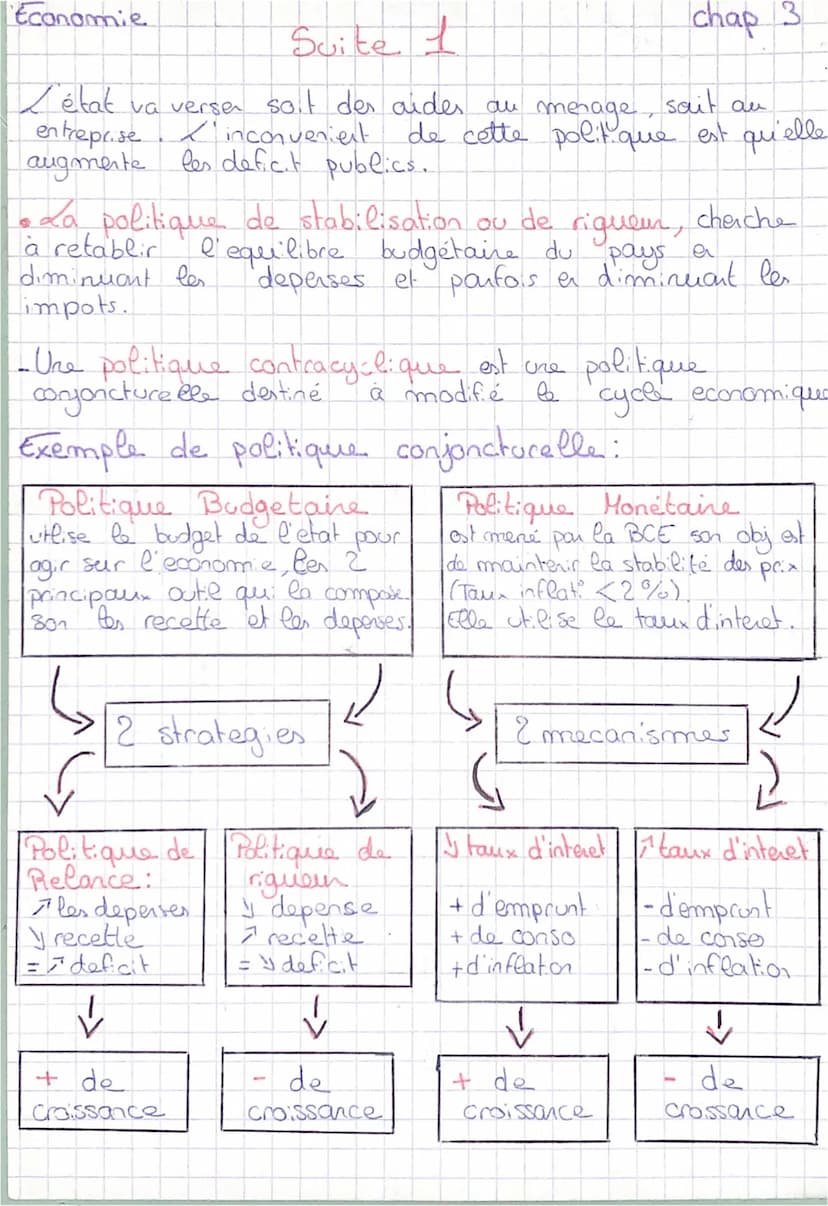 Économie
chap 3
Suite 1
L'état va verser soit des aides au menage, soit au
entreprise. L'inconvenient de cette politique est qu'elle
augmente les deficit publics.
• La politique de stabilisation ou de rigueur, cherche
à retablir l'equilibre budgétaire du pays en
diminuant les depenses et parfois en diminuant les
impots.
- Une politique contracyclique est une politique
conjoncturelle destiné à modifié le cycle economique
Exemple de politique conjoncturelle :
Politique Budgetaire
utilise le budget de l'etat pour
agir sur l'economie, les 2
principaux outil qui la compose
son les recette et les depenses.
Politique Monétaire
est mené par la BCE son obj est
de maintenir la stabilité des prix
(Taux inflat° < 2%)
Elle utilise le taux d'interet.
2 strategies
2 mecanismes
Politique de
Relance :
↗ les depenses
↘ recette
= ↗ deficit
Politique de
rigueur
↘ depense
↗ recette
= ↘ deficit
↘ taux d'interet
+ d'emprunt
+ de conso
+ d'inflation
↗ taux d'interet
- d'emprunt
- de conso
- d'inflation
+ de
croissance
- de
croissance
+ de
croissance
- de
croissance